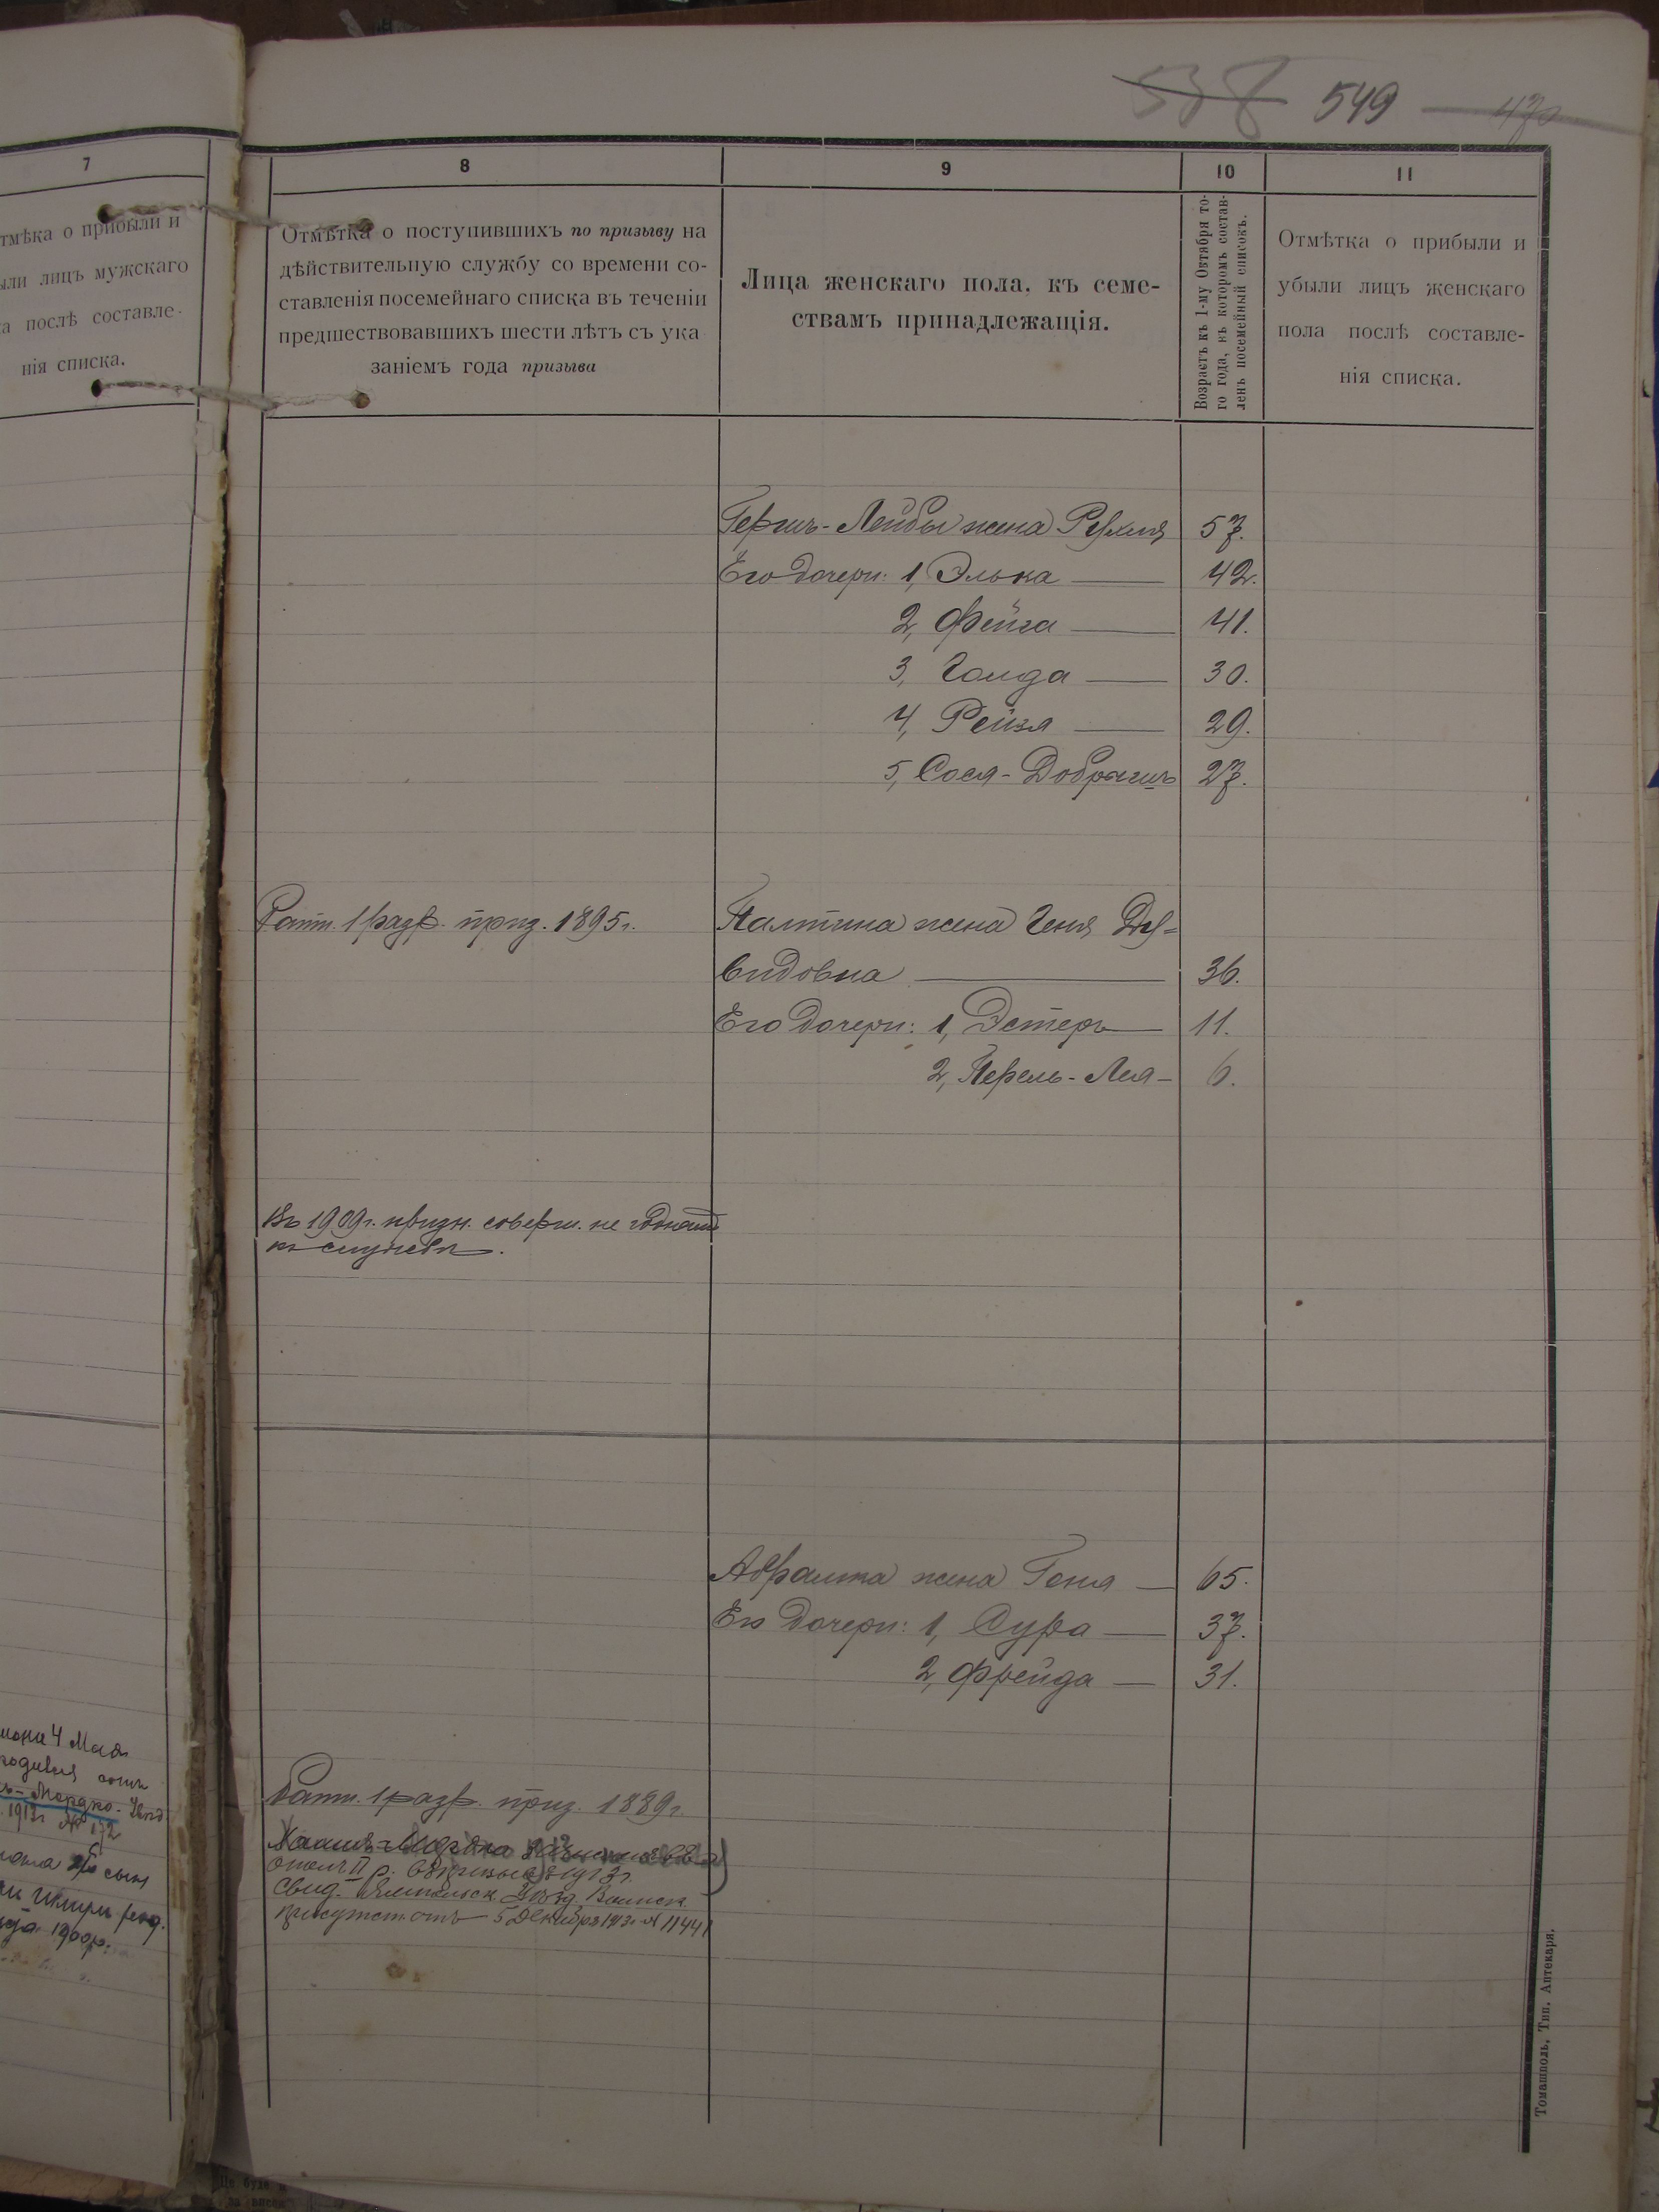 549
7
тмѣка о прибыли и
ыли лицъ мужскаго
а послѣ составле-
нія списка.
8
Отмѣтка о поступившихъ по призыву на
дѣйствительную службу со времени со-
ставленія посемейнаго списка въ теченіи
предшествовавшихъ шести лѣтъ съ ука
заніемъ года призыва
9
Лица женскаго пола, къ семе-
ствамъ принадлежащія.
10
Возрастъ къ 1-му Октября то-
го года, къ которомъ состав-
ленъ посемейный списокъ.
11
Отмѣтка о прибыли и
убыли лицъ женскаго
пола послѣ составле-
нія списка.
Гершъ-Лейбы жена Рухля 57.
Его дочери: 1, Элька 42.
2, Фейга 41.
3, Голда 30.
4, Рейзя 29.
5, Сося- 27.
Ратн. 1 разр. приз. 1895 г.
Палтина жена Геня Ду-
видовна 36.
Его дочери: 1, Эстеръ 11.
2, Перель-Лея- 6.
Въ 1909 г. призн. соверш. не годнымъ
къ службѣ.
Абрамка жена Геня 65.
Его дочери: 1, Сура 37.
2, Фрейда 31.
Ратн. 1 разр. приз. 1889 г.
II р. 1913 г.
свид. Ямпольск. Уѣзд. Воинск.
присутст. отъ 5 Декабря 1913 г. № 11441
4 Мая
родился сынъ
-Мордко.
1913 г. № 172
сынъ
1900 г.
Томашполь, Тип. Аптекаря.